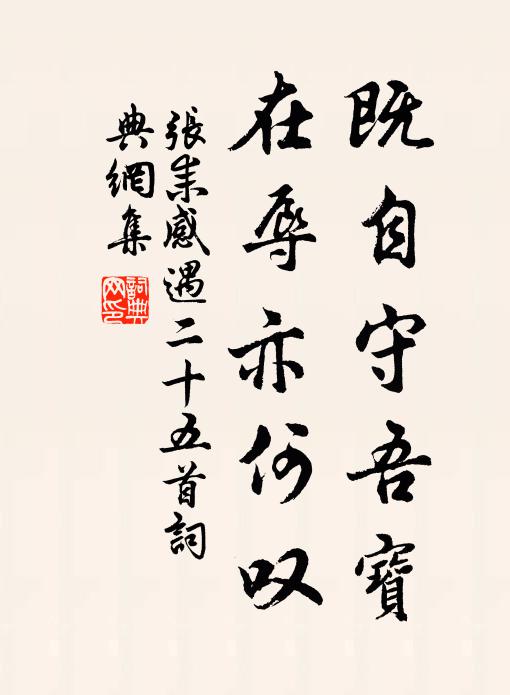 既自守吾寶
在辱亦何叹
張耒感遇二十五首詞
典網集
詞典网印